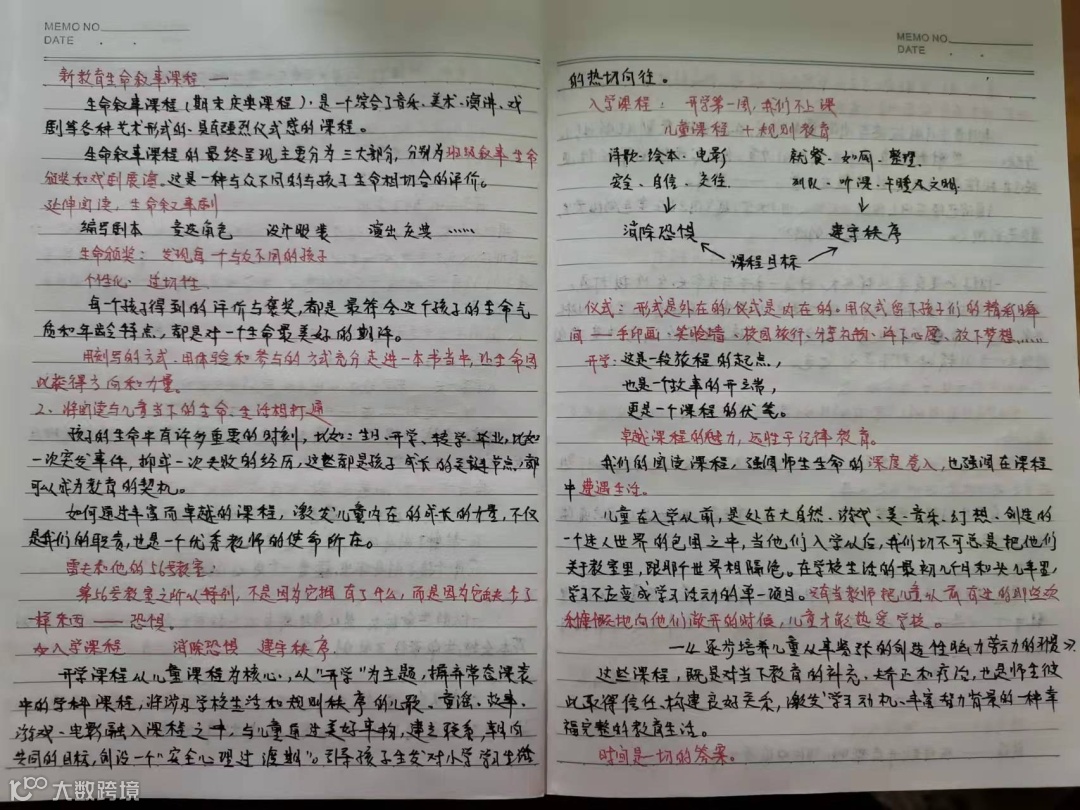 MEMO NO.
DATE . .
新教育生命叙事课程 —
生命叙事课程(期末庆典课程),是一个综合了音乐、美术、演讲、戏
剧等各种艺术形式的、具有强烈仪式感的课程。
生命叙事课程的最终呈现主要分为三大部分,分别为班级叙事、生命
颁奖和戏剧展演。这是一种与众不同的与孩子生命相切合的评价。
延伸阅读,生命叙事剧
编写剧本 竞选角色 设计服装 演出庆典 ……
生命颁奖:发现每一个与众不同的孩子
个性化、适切性
每一个孩子得到的评价与褒奖,都是最符合这个孩子的生命气
质和年龄特点,都是对一个生命最美好的期许。
用刻写的方式、用体验和参与的方式充分走进一本书当中,让生命因
此获得方向和力量。
2、将阅读与儿童当下的生命、生活相打通
孩子的生命中有许多重要的时刻,比如:生日、开学、转学、毕业,比如
一次突发事件,抑或一次失败的经历,这些都是孩子成长的关键节点,都
可以成为教育的契机。
如何通过丰富而卓越的课程,激发儿童内在的成长的力量,不仅
是我们的职责,也是一个优秀教师的使命所在。
雷夫和他的56号教室:
第56号教室之所以特别,不是因为它拥有了什么,而是因为它缺少了
一样东西 —— 恐惧。
入学课程 消除恐惧 建守秩序
开学课程以儿童课程为核心,以“开学”为主题,摒弃常态课表
中的学科课程,将涉及学校生活和规则秩序的儿歌、童谣、故事、
游戏、电影融入课程之中,与儿童通过美好事物,建立联系,朝向
共同的目标,创设一个“安全心理过渡期”。引导孩子生发对小学学习生活
MEMO NO.
DATE . .
的热切向往。
入学课程: 开学第一周,我们不上课
儿童课程 + 规则教育
诗歌·绘本·电影 就餐、如厕、整理
安全、自信、交往 列队、听课、午睡及文明
消除恐惧 建守秩序
课程目标
仪式:形式是外在的,仪式是内在的。用仪式留下孩子们的精彩瞬
间——手印画、笑脸墙、校园旅行、分享礼物、许下心愿、放下梦想……
开学:这是一段旅程的起点,
也是一个故事的开端,
更是一个课程的伏笔。
卓越课程的魅力,远胜于纪律教育。
我们的阅读课程,强调师生生命的深度卷入,也强调在课程
中遭遇生活。
儿童在入学以前,是处在大自然、游戏、美、音乐、幻想、创造的
一个迷人世界的包围之中,当他们入学以后,我们切不可总是把他们
关于教室里,跟那个世界相隔绝。在学校生活的最初几个月和头几年里,
学习不应变成学习活动的单一项目。只有当教师把儿童以前有过的那些欢
乐慷慨地向他们敞开的时候,儿童才能热爱学校。
——《逐步培养儿童从事紧张的创造性脑力劳动的习惯》
这些课程,既是对当下教育的补充、矫正和疗治,也是师生彼
此取得信任、构建良好关系,激发学习动机、丰富智力背景的一种幸
福完整的教育生活。
时间是一切的答案。
大数跨境